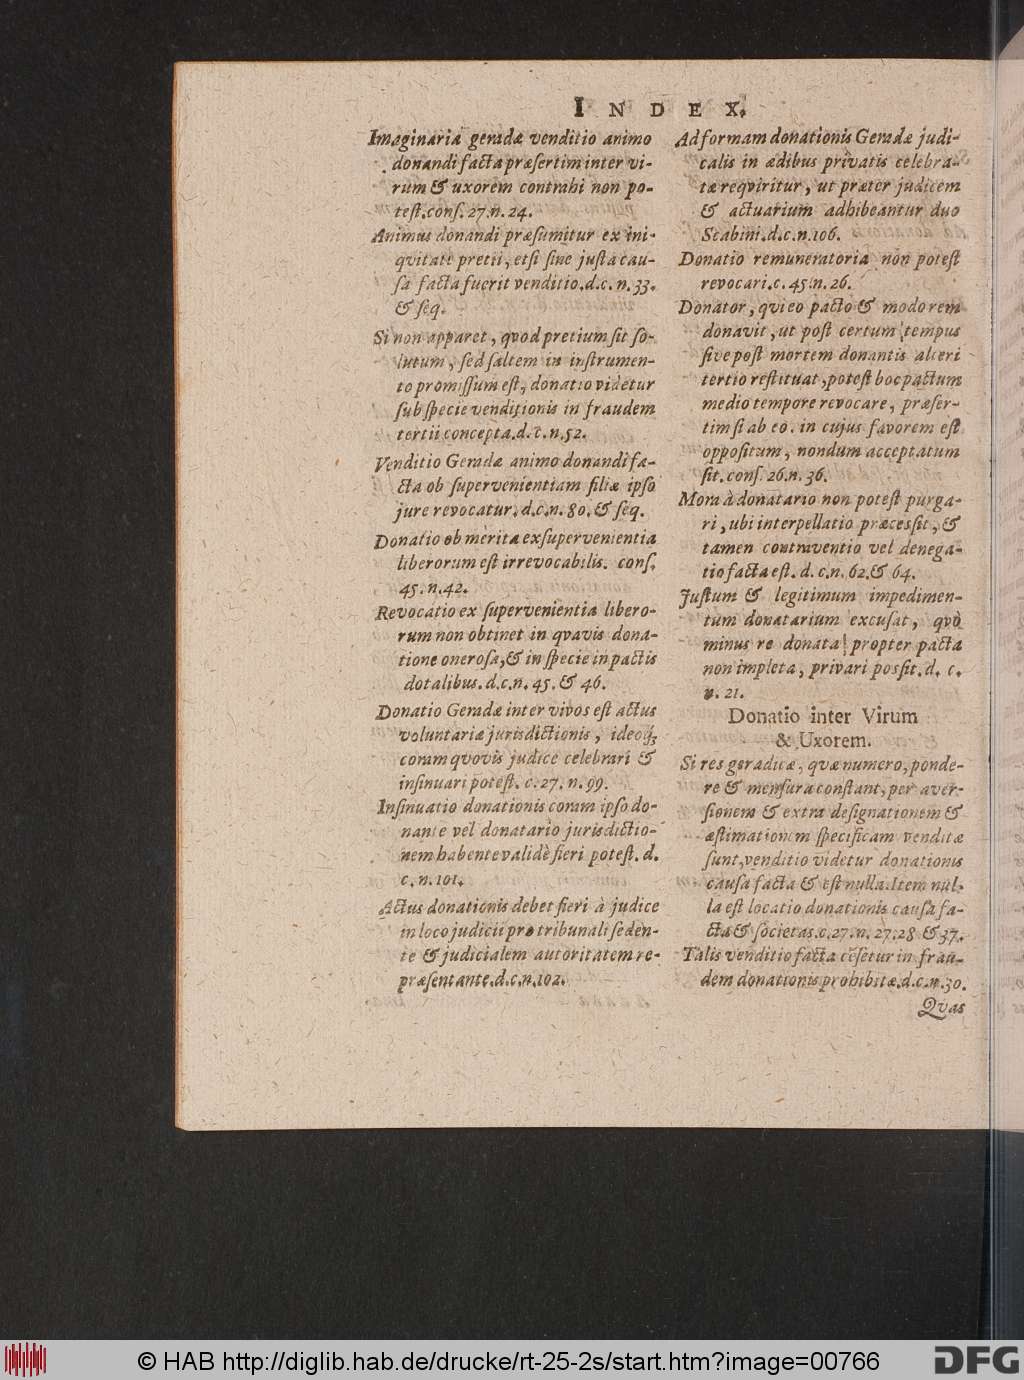 INDEX.
Imaginaria geradæ venditio animo
donandi facta præsertim inter vi-
rum & uxorem contrahi non po-
test. cons. 27. n. 24.
Animus donandi præsumitur ex ini-
qvitate pretii, etsi sine justa cau-
sa facta fuerit venditio. d. c. n. 33.
& seq.
Si non apparet, qvod pretium sit so-
lutum, sed saltem in instrumen-
to promissum est, donatio videtur
sub specie venditionis in fraudem
tertii concepta. d. c. n. 52.
Venditio Geradæ animo donandi fa-
cta ob supervenientiam filiæ ipso
jure revocatur. d. c. n. 80. & seq.
Donatio ob merita ex supervenientia
liberorum est irrevocabilis. cons.
45. n. 42.
Revocatio ex supervenientia libero-
rum non obtinet in qvavis dona-
tione onerosa, & in specie in pactis
dotalibus. d. c. n. 45. & 46.
Donatio Geradæ inter vivos est actus
voluntariæ jurisdictionis, ideoq;
coram qvovis judice celebrari &
insinuari potest. c. 27. n. 99.
Insinuatio donationis coram ipso do-
nante vel donatario jurisdictio-
nem habente validè fieri potest. d.
c. n. 101.
Actus donationis debet fieri à judice
in loco judicii pro tribunali seden-
te & judicialem autoritatem re-
præsentante. d. c. n. 102.
Ad formam donationis Geradæ judi-
calis in ædibus privatis celebra-
tæ reqviritur, ut præter judicem
& actuarium adhibeantur duo
Scabini. d. c. n. 106.
Donatio remuneratoria non potest
revocari. c. 45. n. 26.
Donator, qvi eo pacto & modo rem
donavit, ut post certum tempus
sive post mortem donantis alteri
tertio restituat, potest hoc pactum
medio tempore revocare, præser-
tim si ab eo. in cujus favorem est
oppositum, nondum acceptatum
sit. cons. 26. n. 36.
Mora à donatario non potest purga-
ri, ubi interpellatio præcessit, &
tamen contraventio vel denega-
tio facta est. d. c. n. 62. & 64.
Justum & legitimum impedimen-
tum donatarium excusat, qvò
minus re donata propter pacta
non impleta, privari possit. d. c.
n. 21.
Donatio inter Virum
& Uxorem.
Si res geradicæ, qvæ numero, ponde-
re & mensura constant, per aver-
sionem & extra designationem &
æstimationem specificam venditæ
sunt, venditio videtur donationis
causa facta & est nulla. Item nul-
la est locatio donationis causa fa-
cta & societas. c. 27. n. 27. 28 & 37.
Talis venditio facta cēsetur in frau-
dem donationis prohibitæ. d. c. n. 30.
Qvas
© HAB http://diglib.hab.de/drucke/rt-25-2s/start.htm?image=00766
DFG